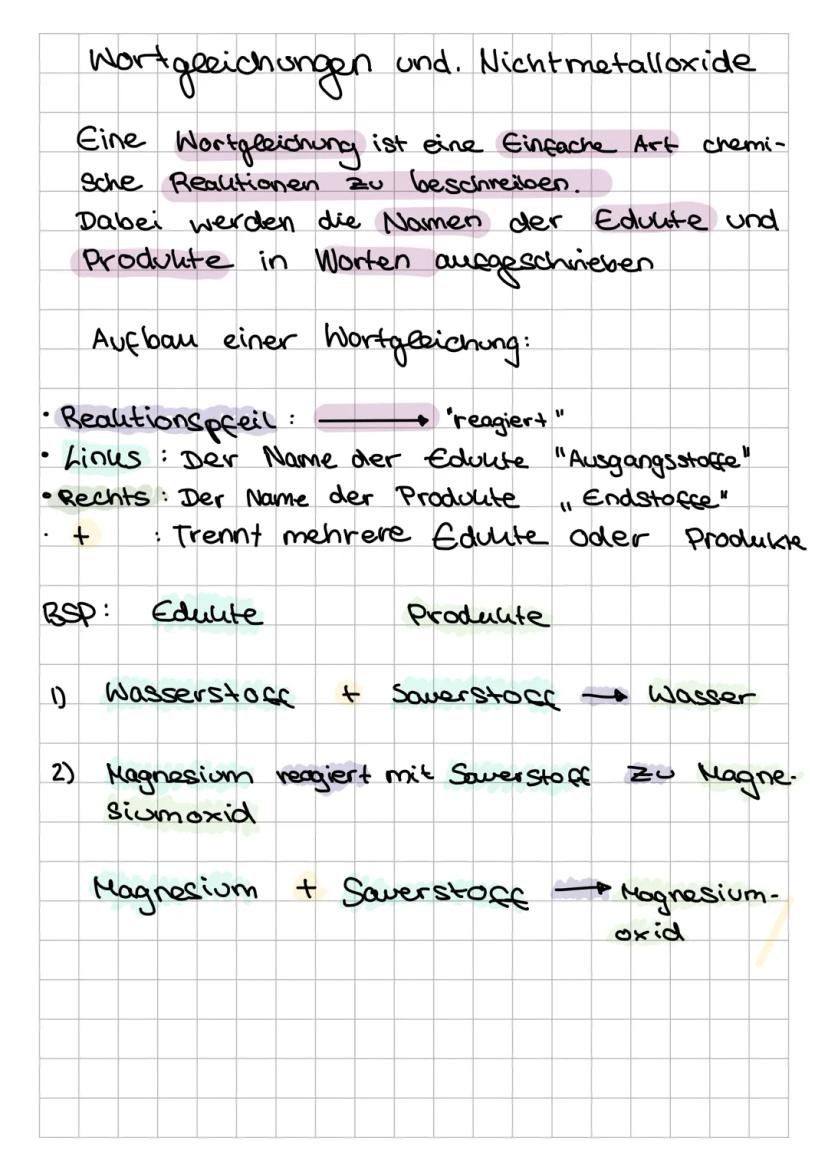 Wortgleichungen und. Nichtmetalloxide
Eine Wortgleichung ist eine Einfache Art chemi-
sche Reaktionen zu beschreiben.
Dabei werden die Namen der Edukte und
Produkte in Worten ausgeschrieben
Aufbau einer Wortgleichung:
• Reaktionspfeil : ⟶ "reagiert"
• Links : Der Name der Edukte "Ausgangsstoffe"
• Rechts : Der Name der Produkte „Endstoffe"
· + : Trennt mehrere Edukte oder Produkte
BSP: Edukte Produkte
1) Wasserstoff + Sauerstoff → Wasser
2) Magnesium reagiert mit Sauerstoff zu Magne-
siumoxid
Magnesium + Sauerstoff → Magnesium-
oxid